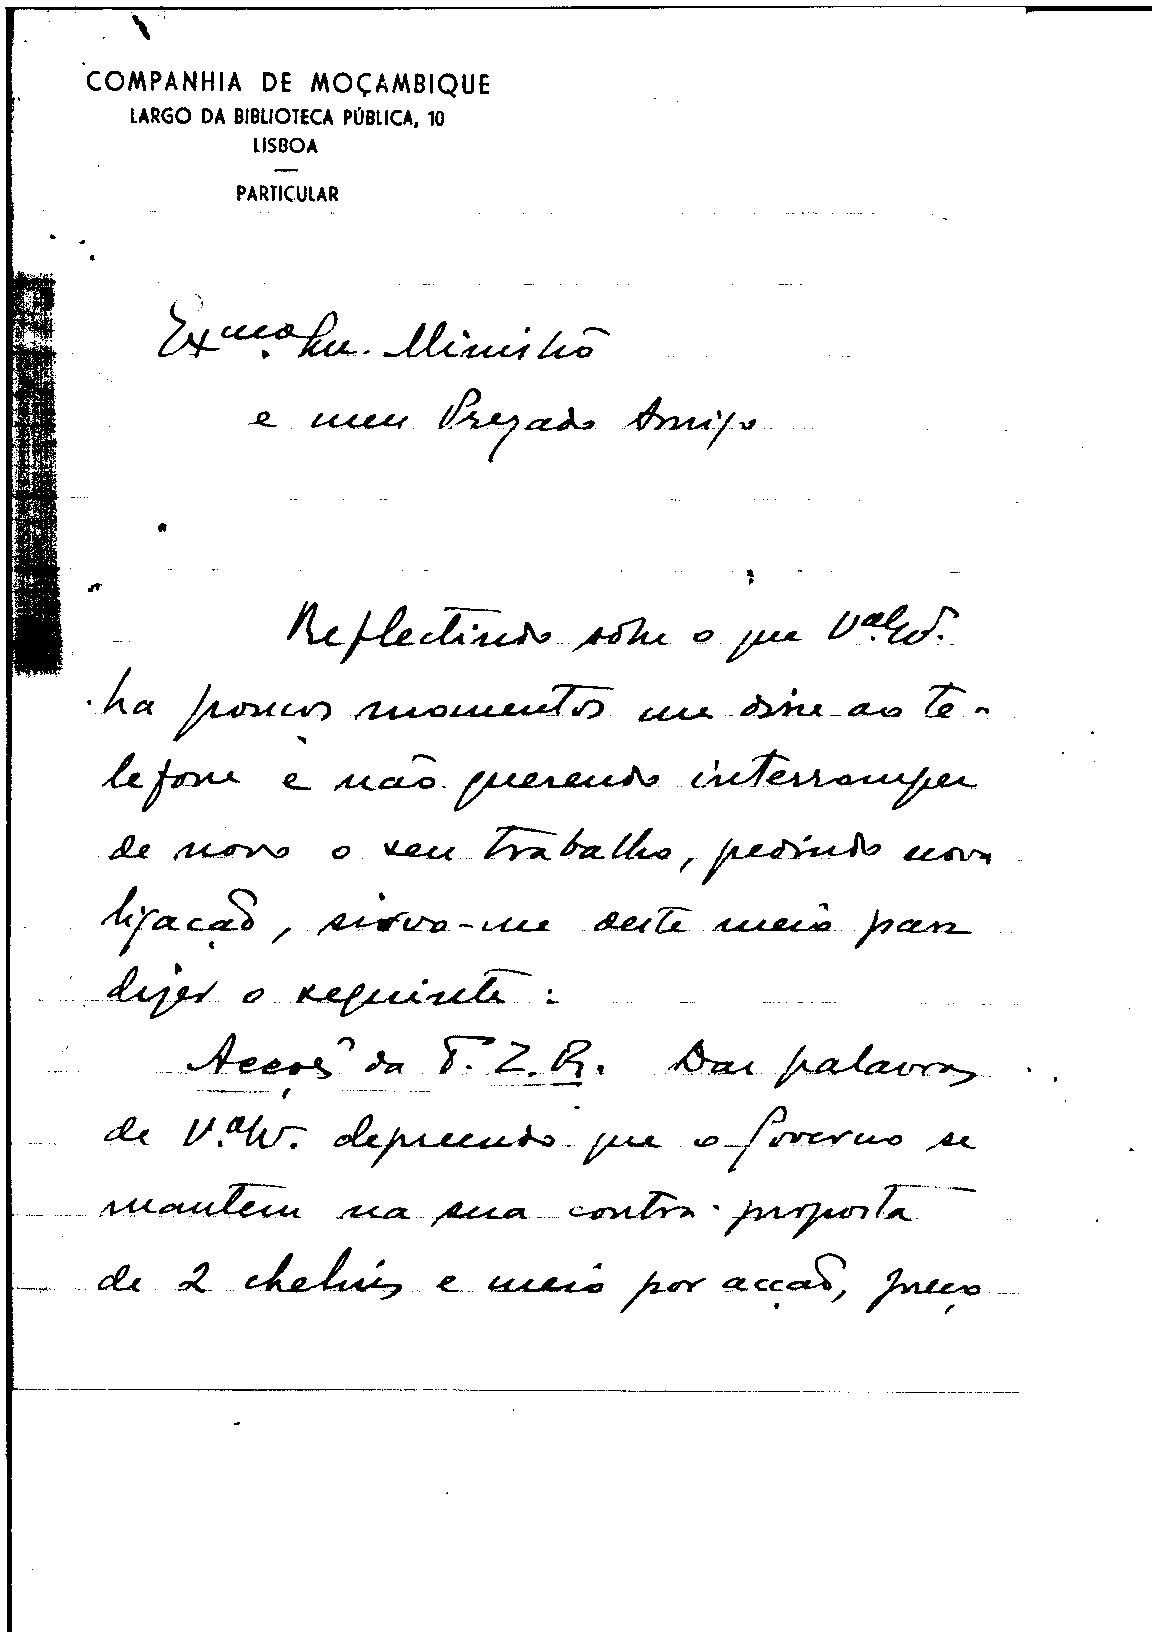 COMPANHIA DE MOÇAMBIQUE
LARGO DA BIBLIOTECA PÚBLICA, 10
LISBOA
PARTICULAR
Exmo. Snr. Ministro
e meu Prezado Amigo
Reflectindo sôbre o que V.ª Ex.ª
ha poucos momentos me disse ao te-
lefone e não querendo interromper
de novo o seu trabalho, pedindo nova
ligação, sirvo-me deste meio para
dizer o seguinte:
Acções da T. Z. R. Das palavras
de V.ª Ex.ª depreendo que o Governo se
mantem na sua contra-proposta
de 2 chelins e meio por acção, preço